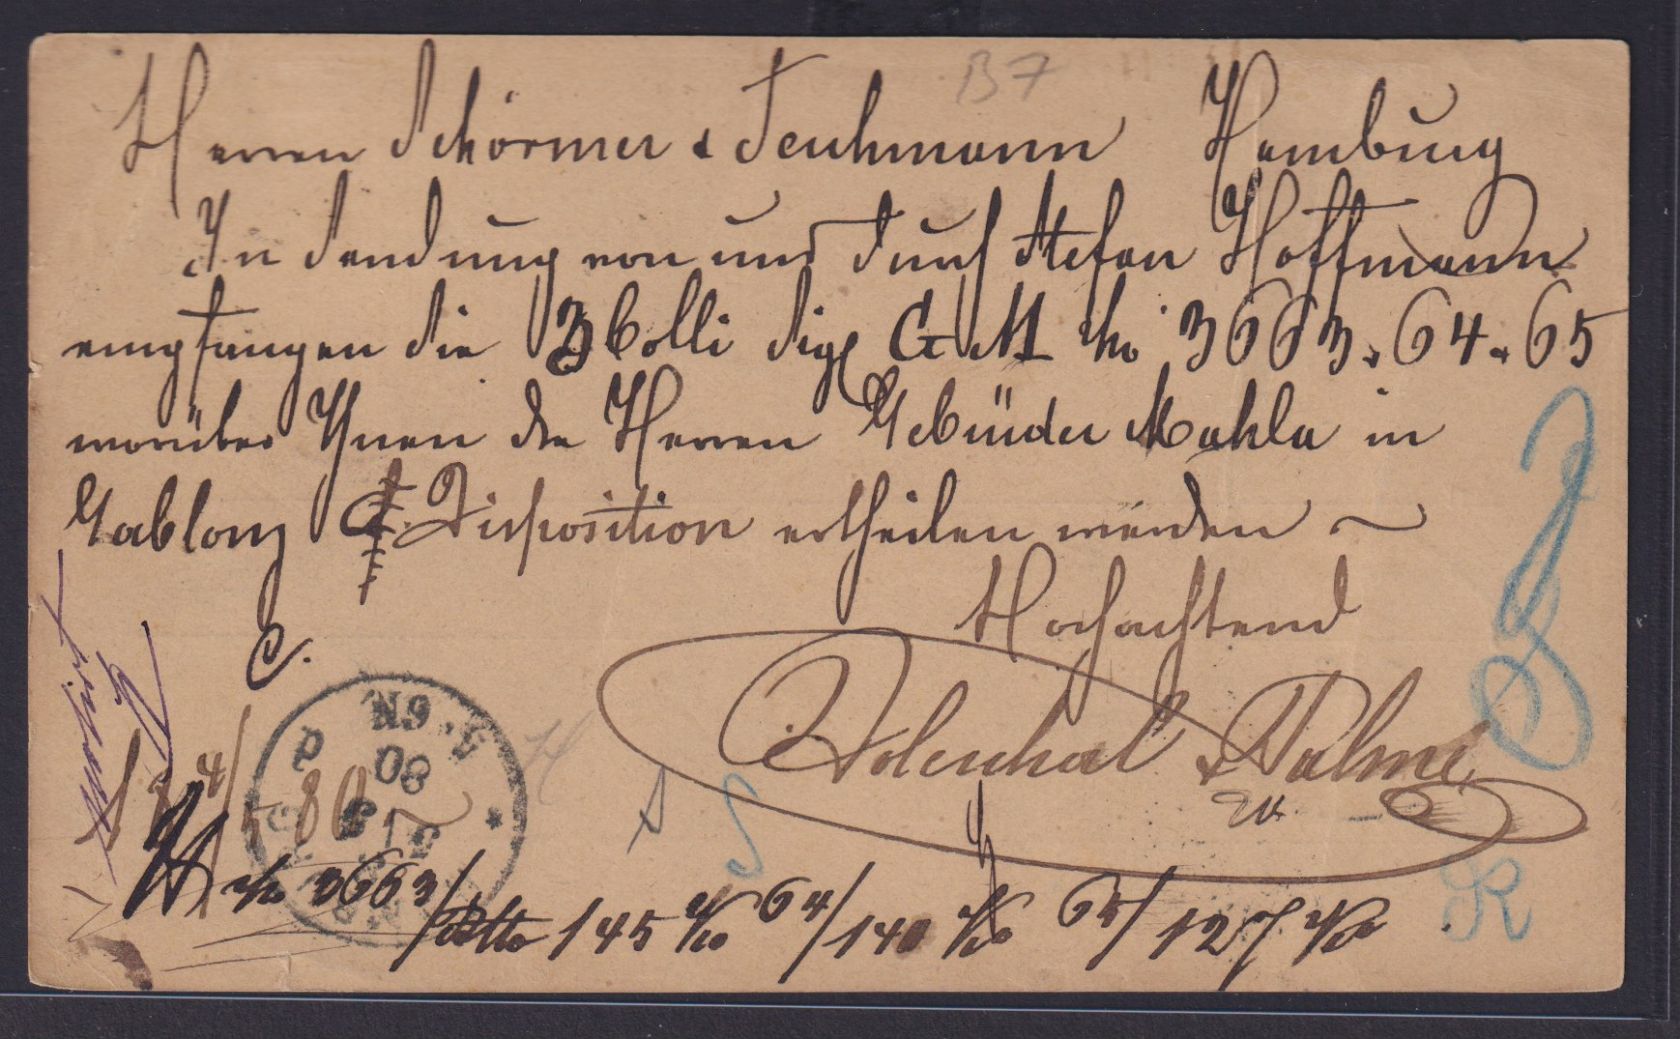 B7
Herren Schörmer & Teuhmann Hamburg
In Sendung von und durch Stefan Hoffmann
empfangen Sie 3 Colli sig. G M No 3663 & 64 & 65
worüber Ihnen die Herren Gebrüder Mahla in
Gablonz Disposition ertheilen werden
Hochachtend
C.
& Palme
No 3663/ Btto 145 Ko 64/ 140 Ko 65/ 127 Ko